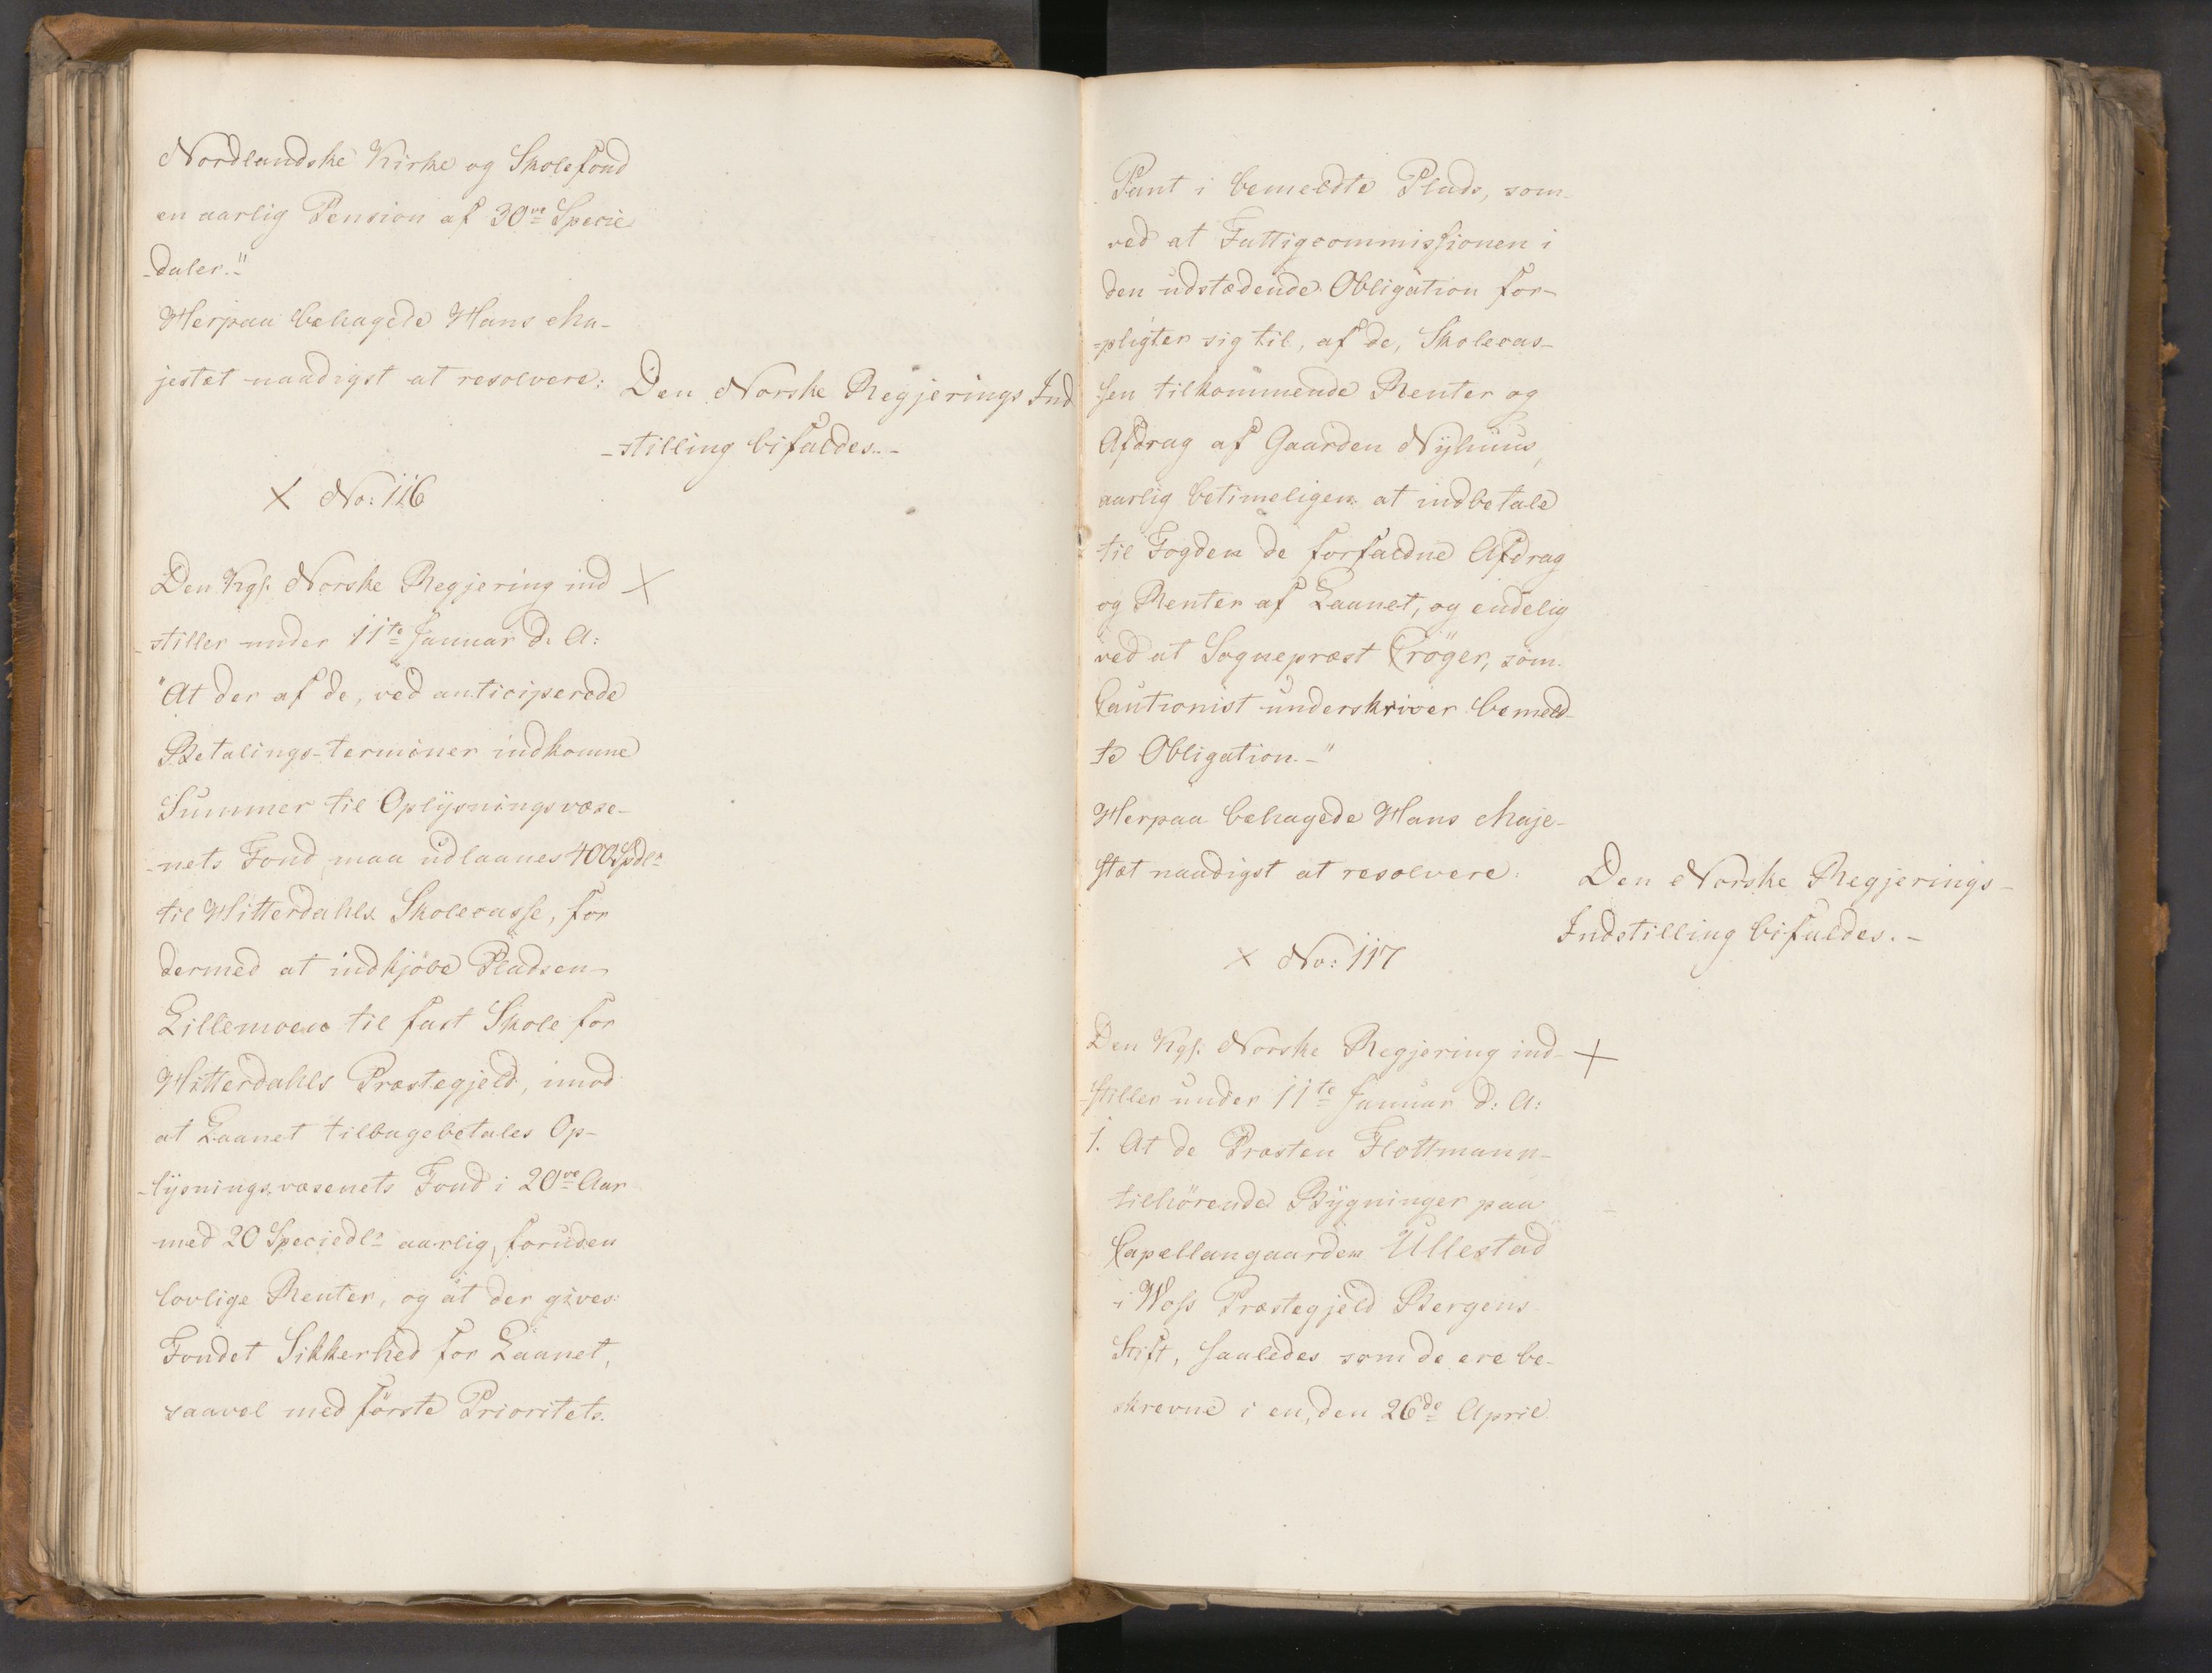 Nordlandske Kirke og Skolefond
en aarlig Pension af 30ve Specie
-daler."
Herpaa behagede Hans Ma-
jestet naadigst at resolvere:
Den Norske Regjerings Ind
-stilling bifaldes.-
X No: 116
Den Kgl. Norske Regjering ind X
-stiller under 11te Januar d. A:
"At der af de, ved anticiperede
Betalings-terminer indkomne
Summer til Oplysningsvæse-
-nets Fond, maa udlaanes 400 Spdlr
til Hitterdahls Skolecasse, for
dermed at indkjöbe Pladsen
Lillemoen til fast Skole for
Hitterdahls Præstegjeld, imod
at Laanet tilbagebetales Op-
-lysningsvæsenets Fond i 20ve Aar
med 20 Speciedlr aarlig, foruden
lovlige Renter, og at der gives
Fondet Sikkerhed for Laanet,
saavel med förste Prioritets
Pant i bemeldte Plads, som
ved at Fattigcommissionen i
den udstædende Obligation for-
-pligter sig til, af de, Skolecas-
sen tilkommende Renter og
Afdrag af Gaarden Nyhuus,
aarlig betimeligen at indbetale
til Fogden de forfaldne Afdrag
og Renter af Laanet, og endelig
ved at Sognepræst Cröger, som
Cautionist underskriver bemeld-
te Obligation.-"
Herpaa behagede Hans Maje-
stæt naadigst at resolvere:
Den Norske Regjerings-
Indstilling bifaldes.-
X No: 117
Den Kgl: Norske Regjering ind- X
-stiller under 11te Januar d: A:
1. At de Præsten Flottmann
tilhörende Bygninger paa
Capellangaarden Ullestad
i Woss Præstegjeld Bergens
Stift, saaledes som de ere be-
skrevne i en, den 26de April